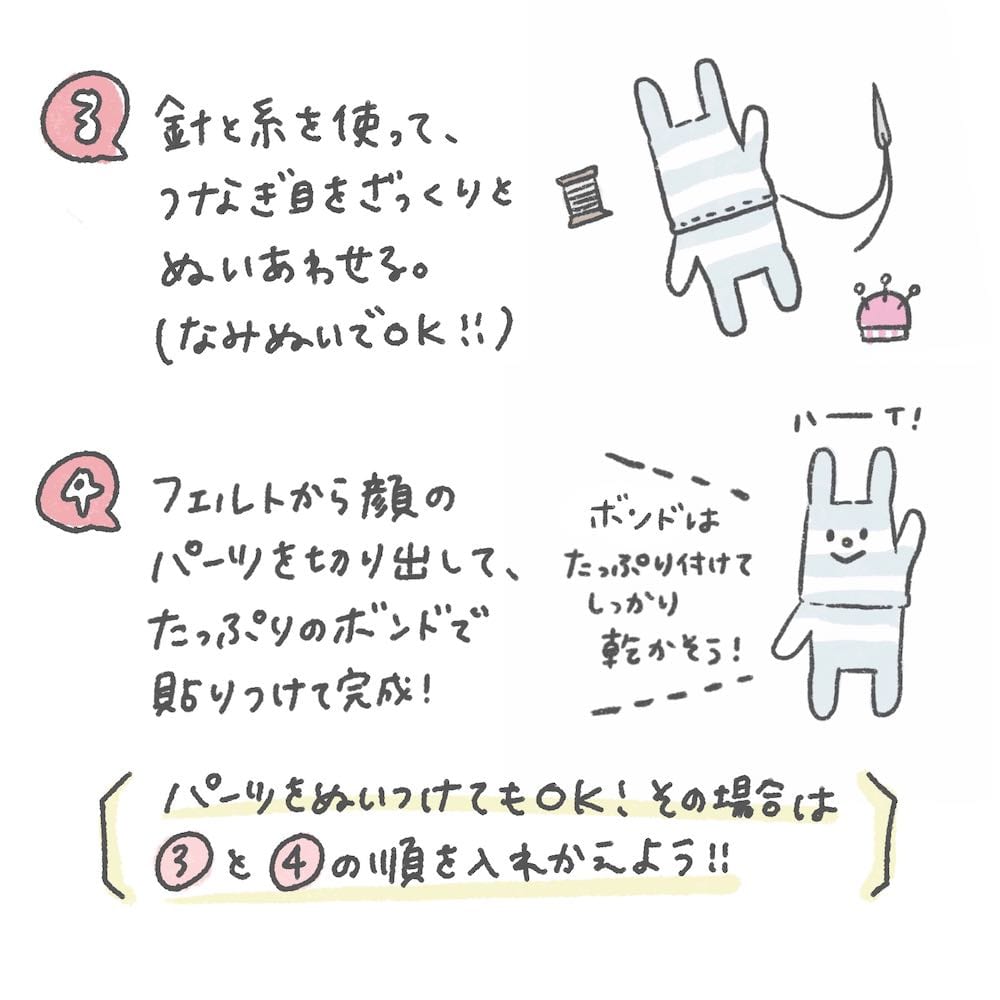 3
針と糸を使って、
つなぎ目をざっくりと
ぬいあわせる。
(なみぬいでOK!!)
4
フェルトから顔の
パーツを切り出して、
たっぷりのボンドで
貼りつけて完成!
ハーイ!
ボンドは
たっぷり付けて
しっかり
乾かそう!
パーツをぬいつけてもOK!その場合は
③と④の順を入れかえよう!!